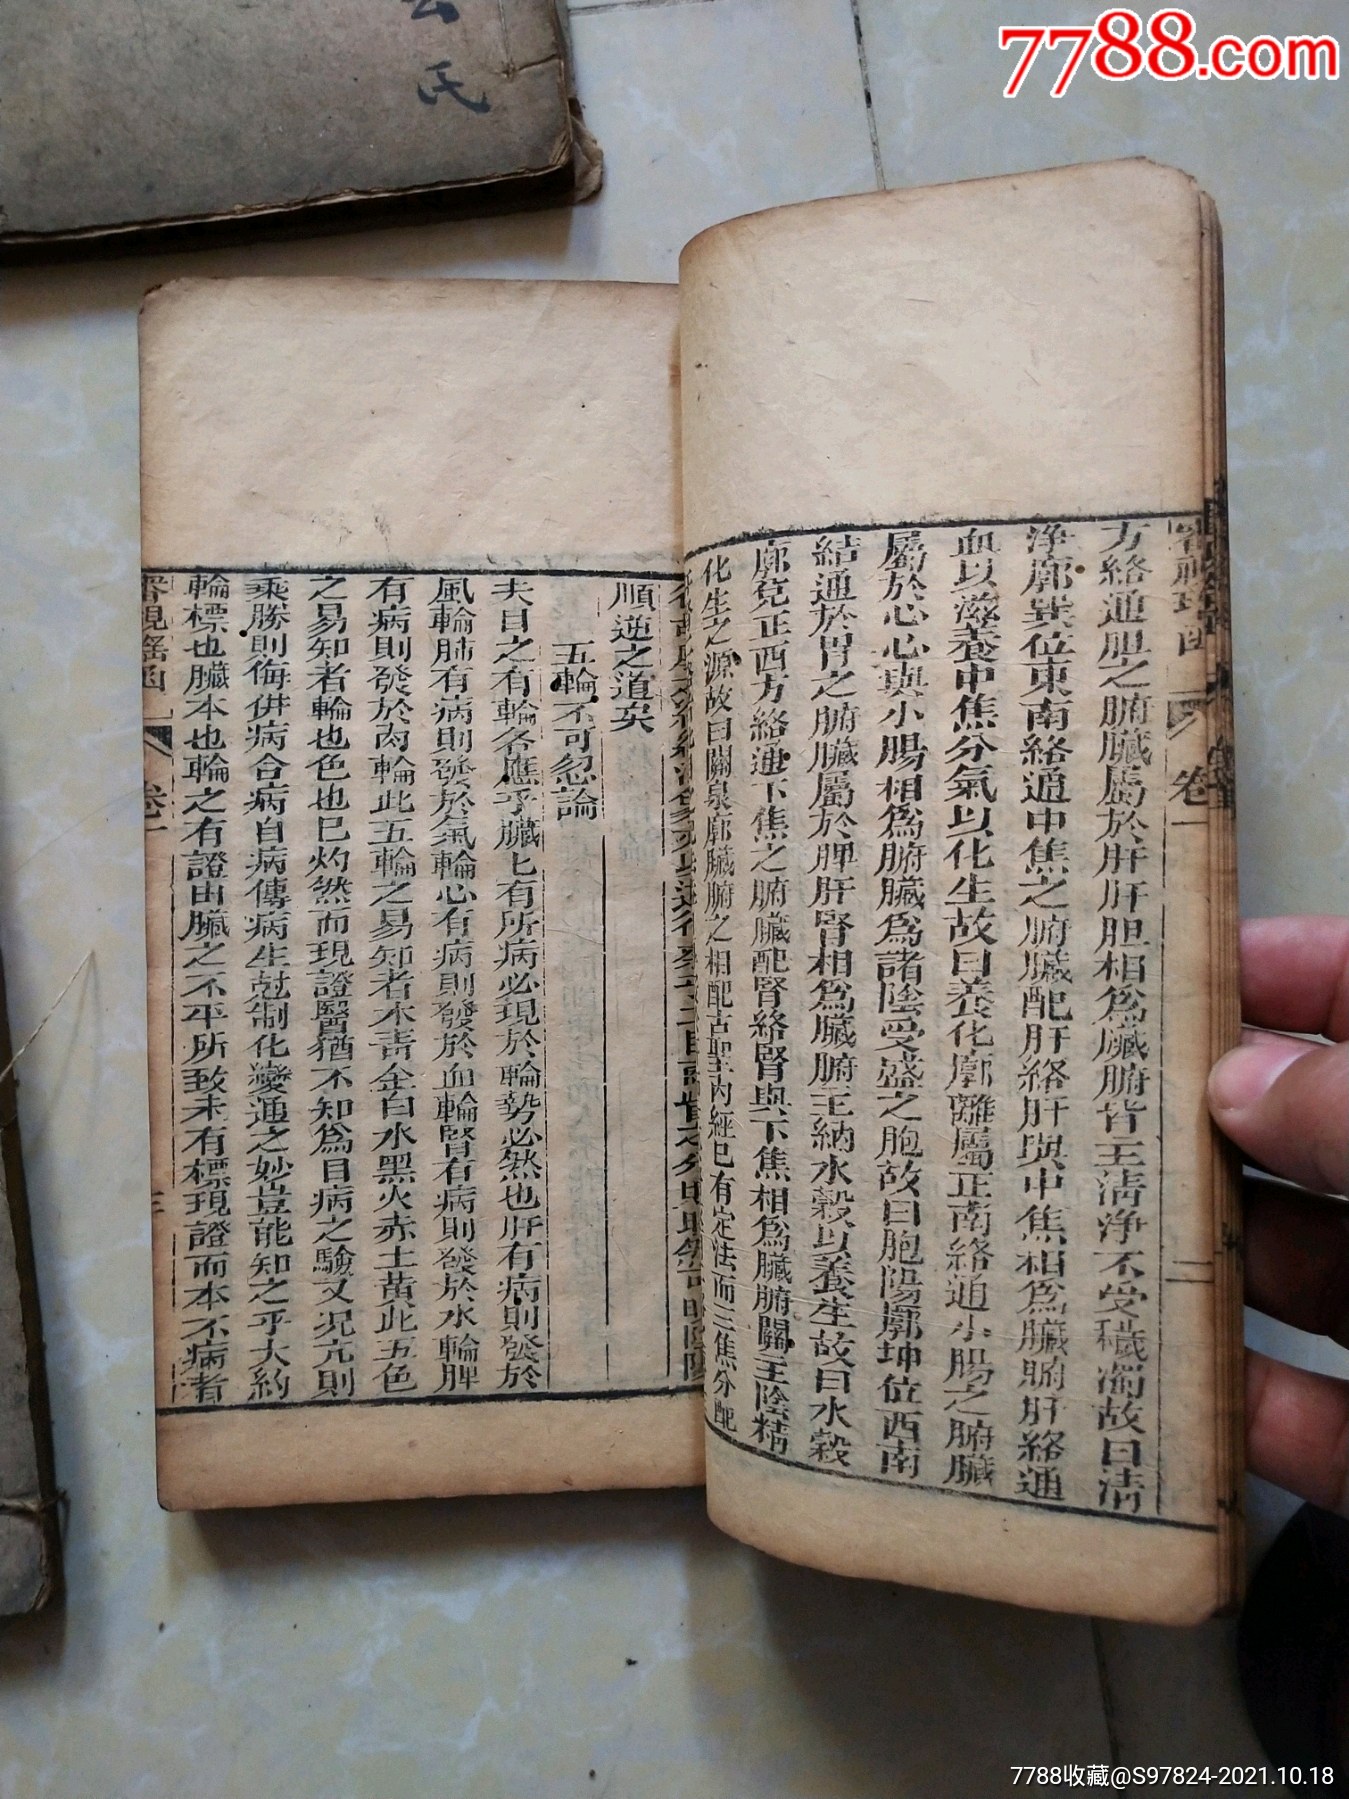 7788.com
云氏
方絡通胆之腑臟屬於肝肝胆相爲臟腑皆主清淨不受穢濁故曰清
淨廓巽位東南絡通中焦之腑臟配肝絡肝與中焦相爲臟腑肝絡通
血以滋養中焦分氣以化生故曰養化廓離屬正南絡通小腸之腑臟
屬於心心與小腸相爲腑臟爲諸陰受盛之胞故曰胞陽廓坤位西南
結通於胃之腑臟屬於脾肝腎相爲臟腑主納水穀以養生故曰水穀
廓兌正西方絡通下焦之腑臟配腎絡腎與下焦相爲臟腑關主陰精
化生之源故曰關泉廓臟腑之相配古聖內經已有定法而三焦分配
順逆之道矣
五輪不可忽論
夫目之有輪各應乎臟匕有所病必現於輪勢必然也肝有病則發於
風輪肺有病則發於氣輪心有病則發於血輪腎有病則發於水輪脾
有病則發於肉輪此五輪之易知者木青金白水黑火赤土黃此五色
之易知者輪也色也已灼然而現證醫猶不知爲目病之驗又况亢則
乘勝則侮併病合病自病傳病生尅制化變通之妙豈能知之乎大約
輪標也臟本也輪之有證由臟之不平所致未有標現證而本不病者
審視瑤函 卷一 三
審視瑤函 卷一 二
7788收藏@S97824-2021.10.18